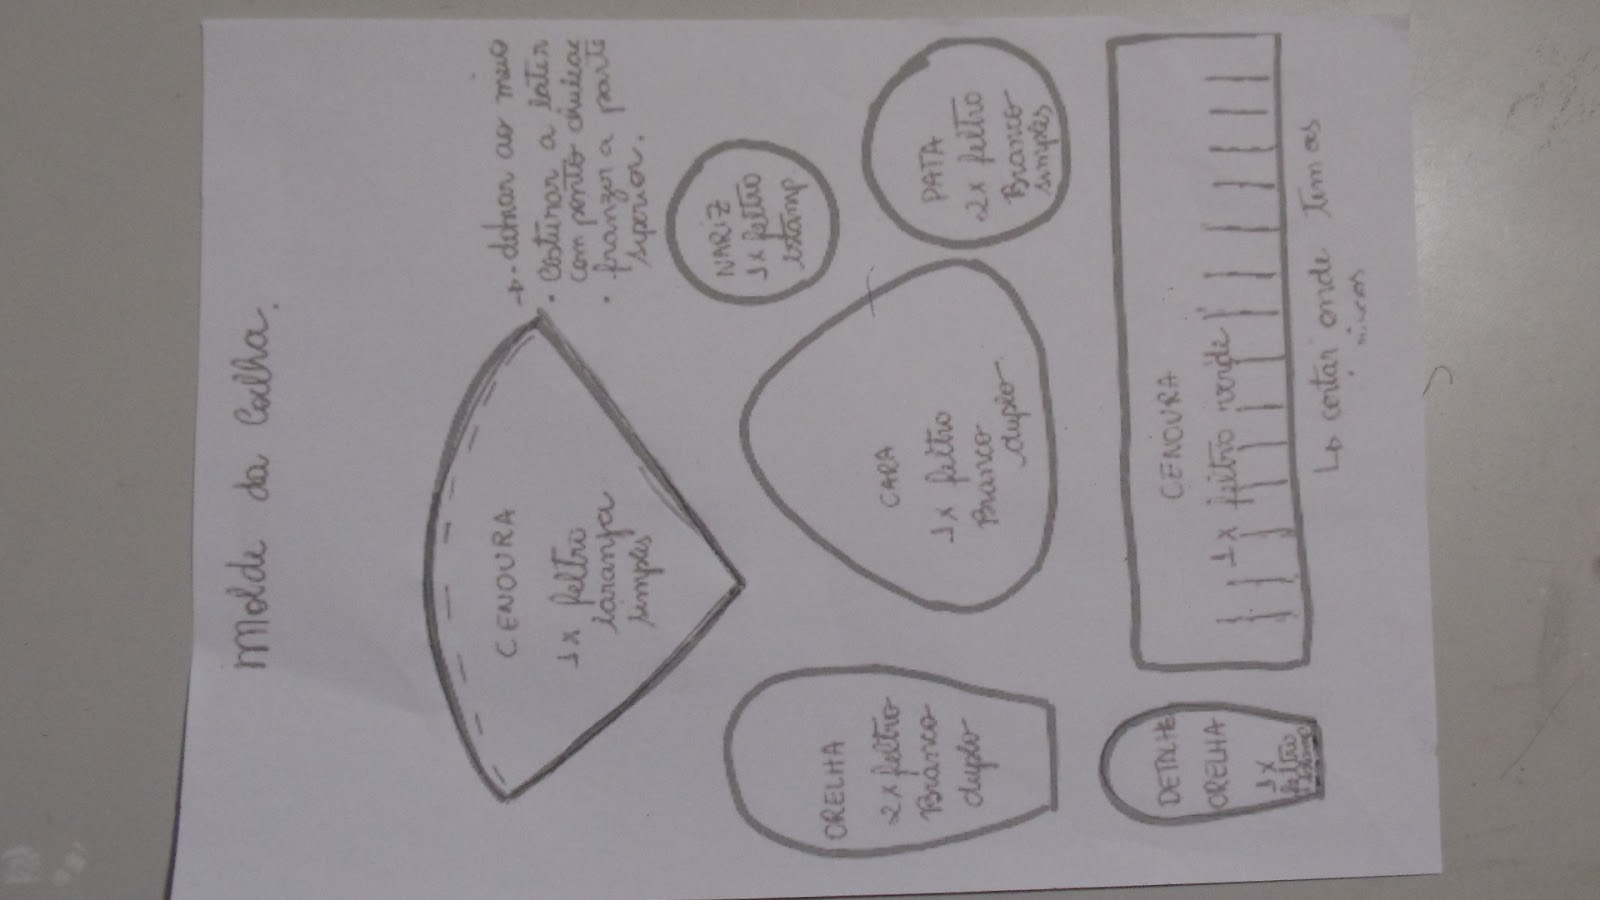 Molde da Coelha.
CENOURA
1x feltro
laranja
simples
→ . dobrar ao meio
. Costurar a later
com ponto
. franzir a parte
superior.
NARIZ
1x feltro
estamp.
ORELHA
2x feltro
Branco
duplo
CARA
1x feltro
Branco
duplo
PATA
2x feltro
Branco
simples
DETALHE
ORELHA
1x
feltro
CENOURA
1x feltro verde
↳ cortar onde tem os
riscos